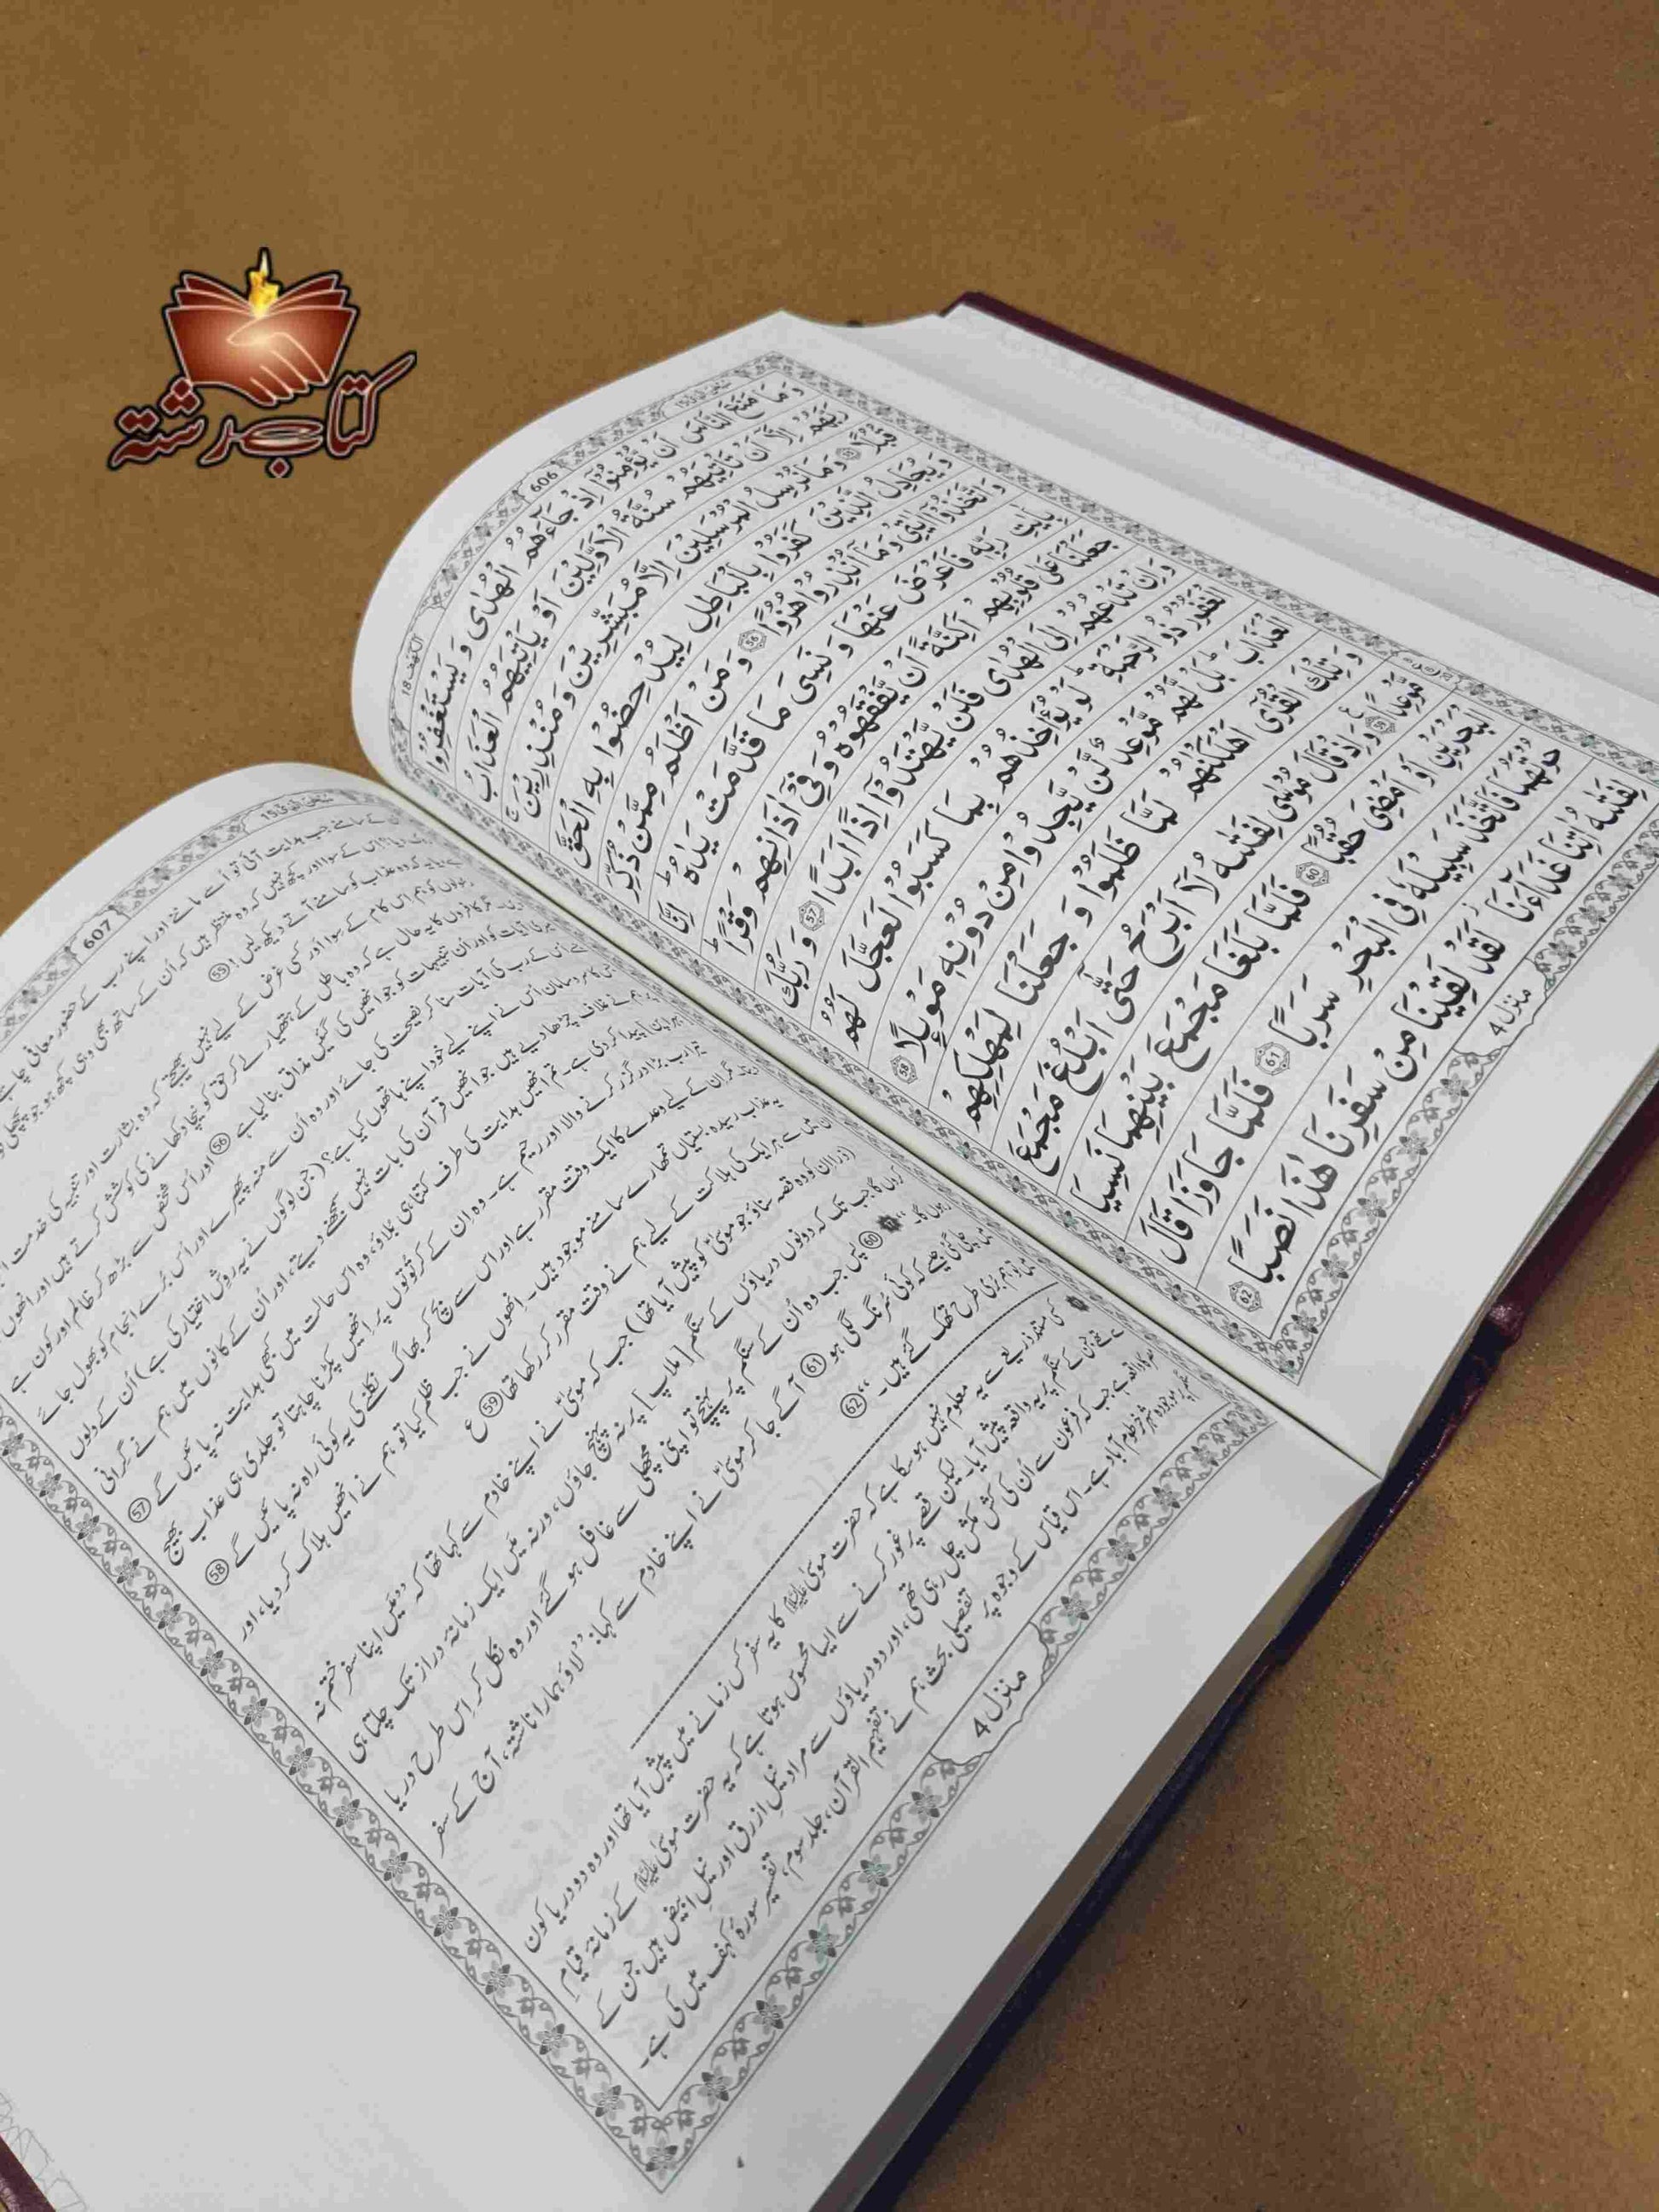 کتاب رشتہ
606
الكهف 18
وَ مَا مَنَعَ النَّاسَ اَنْ يُّؤْمِنُوْۤا اِذْ جَآءَهُمُ الْهُدٰى وَ يَسْتَغْفِرُوْا
رَبَّهُمْ اِلَّاۤ اَنْ تَاْتِيَهُمْ سُنَّةُ الْاَوَّلِيْنَ اَوْ يَاْتِيَهُمُ الْعَذَابُ
قُبُلًا ۝55 وَ مَا نُرْسِلُ الْمُرْسَلِيْنَ اِلَّا مُبَشِّرِيْنَ وَ مُنْذِرِيْنَ ۚ
وَ يُجَادِلُ الَّذِيْنَ كَفَرُوْا بِالْبَاطِلِ لِيُدْحِضُوْا بِهِ الْحَقَّ
وَ اتَّخَذُوْۤا اٰيٰتِيْ وَ مَاۤ اُنْذِرُوْا هُزُوًا ۝56 وَ مَنْ اَظْلَمُ مِمَّنْ ذُكِّرَ
بِاٰيٰتِ رَبِّهٖ فَاَعْرَضَ عَنْهَا وَ نَسِيَ مَا قَدَّمَتْ يَدٰهُ ؕ اِنَّا
جَعَلْنَا عَلٰى قُلُوْبِهِمْ اَكِنَّةً اَنْ يَّفْقَهُوْهُ وَ فِيْۤ اٰذَانِهِمْ وَقْرًا ؕ
وَ اِنْ تَدْعُهُمْ اِلَى الْهُدٰى فَلَنْ يَّهْتَدُوْۤا اِذًا اَبَدًا ۝57 وَ رَبُّكَ
الْغَفُوْرُ ذُو الرَّحْمَةِ ؕ لَوْ يُؤَاخِذُهُمْ بِمَا كَسَبُوْا لَعَجَّلَ لَهُمُ
الْعَذَابَ ؕ بَلْ لَّهُمْ مَّوْعِدٌ لَّنْ يَّجِدُوْا مِنْ دُوْنِهٖ مَوْىِٕلًا ۝58
وَ تِلْكَ الْقُرٰۤى اَهْلَكْنٰهُمْ لَمَّا ظَلَمُوْا وَ جَعَلْنَا لِمَهْلِكِهِمْ
مَّوْعِدًا ۝59 وَ اِذْ قَالَ مُوْسٰى لِفَتٰىهُ لَاۤ اَبْرَحُ حَتّٰۤى اَبْلُغَ مَجْمَعَ
الْبَحْرَيْنِ اَوْ اَمْضِيَ حُقُبًا ۝60 فَلَمَّا بَلَغَا مَجْمَعَ بَيْنِهِمَا نَسِيَا
حُوْتَهُمَا فَاتَّخَذَ سَبِيْلَهٗ فِي الْبَحْرِ سَرَبًا ۝61 فَلَمَّا جَاوَزَا قَالَ
لِفَتٰىهُ اٰتِنَا غَدَآءَنَا ؗ لَقَدْ لَقِيْنَا مِنْ سَفَرِنَا هٰذَا نَصَبًا ۝62
منزل 4
607
کے سامنے جب ہدایت آئی تو اُسے ماننے اور اپنے رب کے حضور معافی چاہنے
اس کے سوا اور کچھ نہیں کہ وہ منتظر ہیں کہ اُن کے ساتھ بھی وہی کچھ ہو جو پچھلی
کہ وہ عذاب کو سامنے آتے دیکھ لیں! 55
رسولوں کو ہم اس کام کے سوا اور کسی غرض کے لیے نہیں بھیجتے کہ وہ بشارت اور تنبیہ کی خدمت
مگر کافروں کا یہ حال ہے کہ وہ باطل کے ہتھیار لے کر حق کو نیچا دکھانے کی کوشش کرتے ہیں اور انھوں
میری آیات کو اور ان تنبیہات کو جو انھیں کی گئیں مذاق بنا لیا ہے 56 اور اُس شخص سے بڑھ کر ظالم اور کون ہے
اس کے رب کی آیات سنا کر نصیحت کی جائے اور وہ اُن سے منہ پھیرے اور اُس بُرے انجام کو بھول جائے
جس کا سروسامان اس نے اپنے لیے خود اپنے ہاتھوں کیا ہے؟ (جن لوگوں نے یہ روش اختیار کی ہے) اُن کے دلوں
پر ہم نے غلاف چڑھا دیے ہیں جو انھیں قرآن کی بات نہیں سمجھنے دیتے، اور اُن کے کانوں میں ہم نے گرانی
پیدا کر دی ہے۔ تم انھیں ہدایت کی طرف کتنا ہی بلاؤ، وہ اس حالت میں بھی ہدایت نہ پائیں گے 57
تیرا رب بڑا درگزر کرنے والا اور رحیم ہے۔ وہ ان کے کرتوتوں پر انھیں پکڑنا چاہتا تو جلدی ہی عذاب بھیج
دیتا۔ مگر ان کے لیے وعدے کا ایک وقت مقرر ہے اور اس سے بچ کر بھاگ نکلنے کی یہ کوئی راہ نہ پائیں گے 58
یہ عذاب رسیدہ بستیاں تمھارے سامنے موجود ہیں۔ اِنھوں نے جب ظلم کیا تو ہم نے انھیں ہلاک کر دیا، اور
ان میں سے ہر ایک کی ہلاکت کے لیے ہم نے وقت مقرر کر رکھا تھا 59 ع
(ذرا ان کو وہ قصہ سناؤ جو موسیٰؑ کو پیش آیا تھا) جب کہ موسیٰؑ نے اپنے خادم سے کہا تھا کہ ”میں اپنا سفر ختم نہ
کروں گا جب تک کہ دونوں دریاؤں کے سنگم [ملاپ] پر نہ پہنچ جاؤں، ورنہ میں ایک زمانۂ دراز تک چلتا ہی
رہوں گا۔“ 60 پس جب وہ اُن کے سنگم پر پہنچے تو اپنی مچھلی سے غافل ہو گئے اور وہ نکل کر اِس طرح دریا
میں چلی گئی جیسے کہ کوئی سُرنگ لگی ہو 61 آگے جا کر موسیٰؑ نے اپنے خادم سے کہا: ”لاؤ ہمارا ناشتہ، آج کے سفر
میں تو ہم بُری طرح تھک گئے ہیں۔“ 62
کسی مستند ذریعے سے یہ معلوم نہیں ہو سکا ہے کہ حضرت موسیٰ علیہ السلام کا یہ سفر کس زمانے میں پیش آیا تھا اور وہ دو دریا کون
سے تھے جن کے سنگم پر یہ واقعہ پیش آیا۔ لیکن قصے پر غور کرنے سے ایسا محسوس ہوتا ہے کہ یہ حضرت موسیٰ علیہ السلام کے زمانۂ قیام
مصر کا واقعہ ہے جب کہ فرعون سے اُن کی کش مکش چل رہی تھی، اور دو دریاؤں سے مراد نیلِ ازرق اور نیلِ ابیض ہیں جن کے
سنگم پر موجودہ شہر خرطوم آباد ہے۔ اس قیاس کے وجوہ پر تفصیلی بحث ہم نے تفہیم القرآن، جلد سوم، تفسیر سورۂ کہف میں کی ہے۔
منزل 4